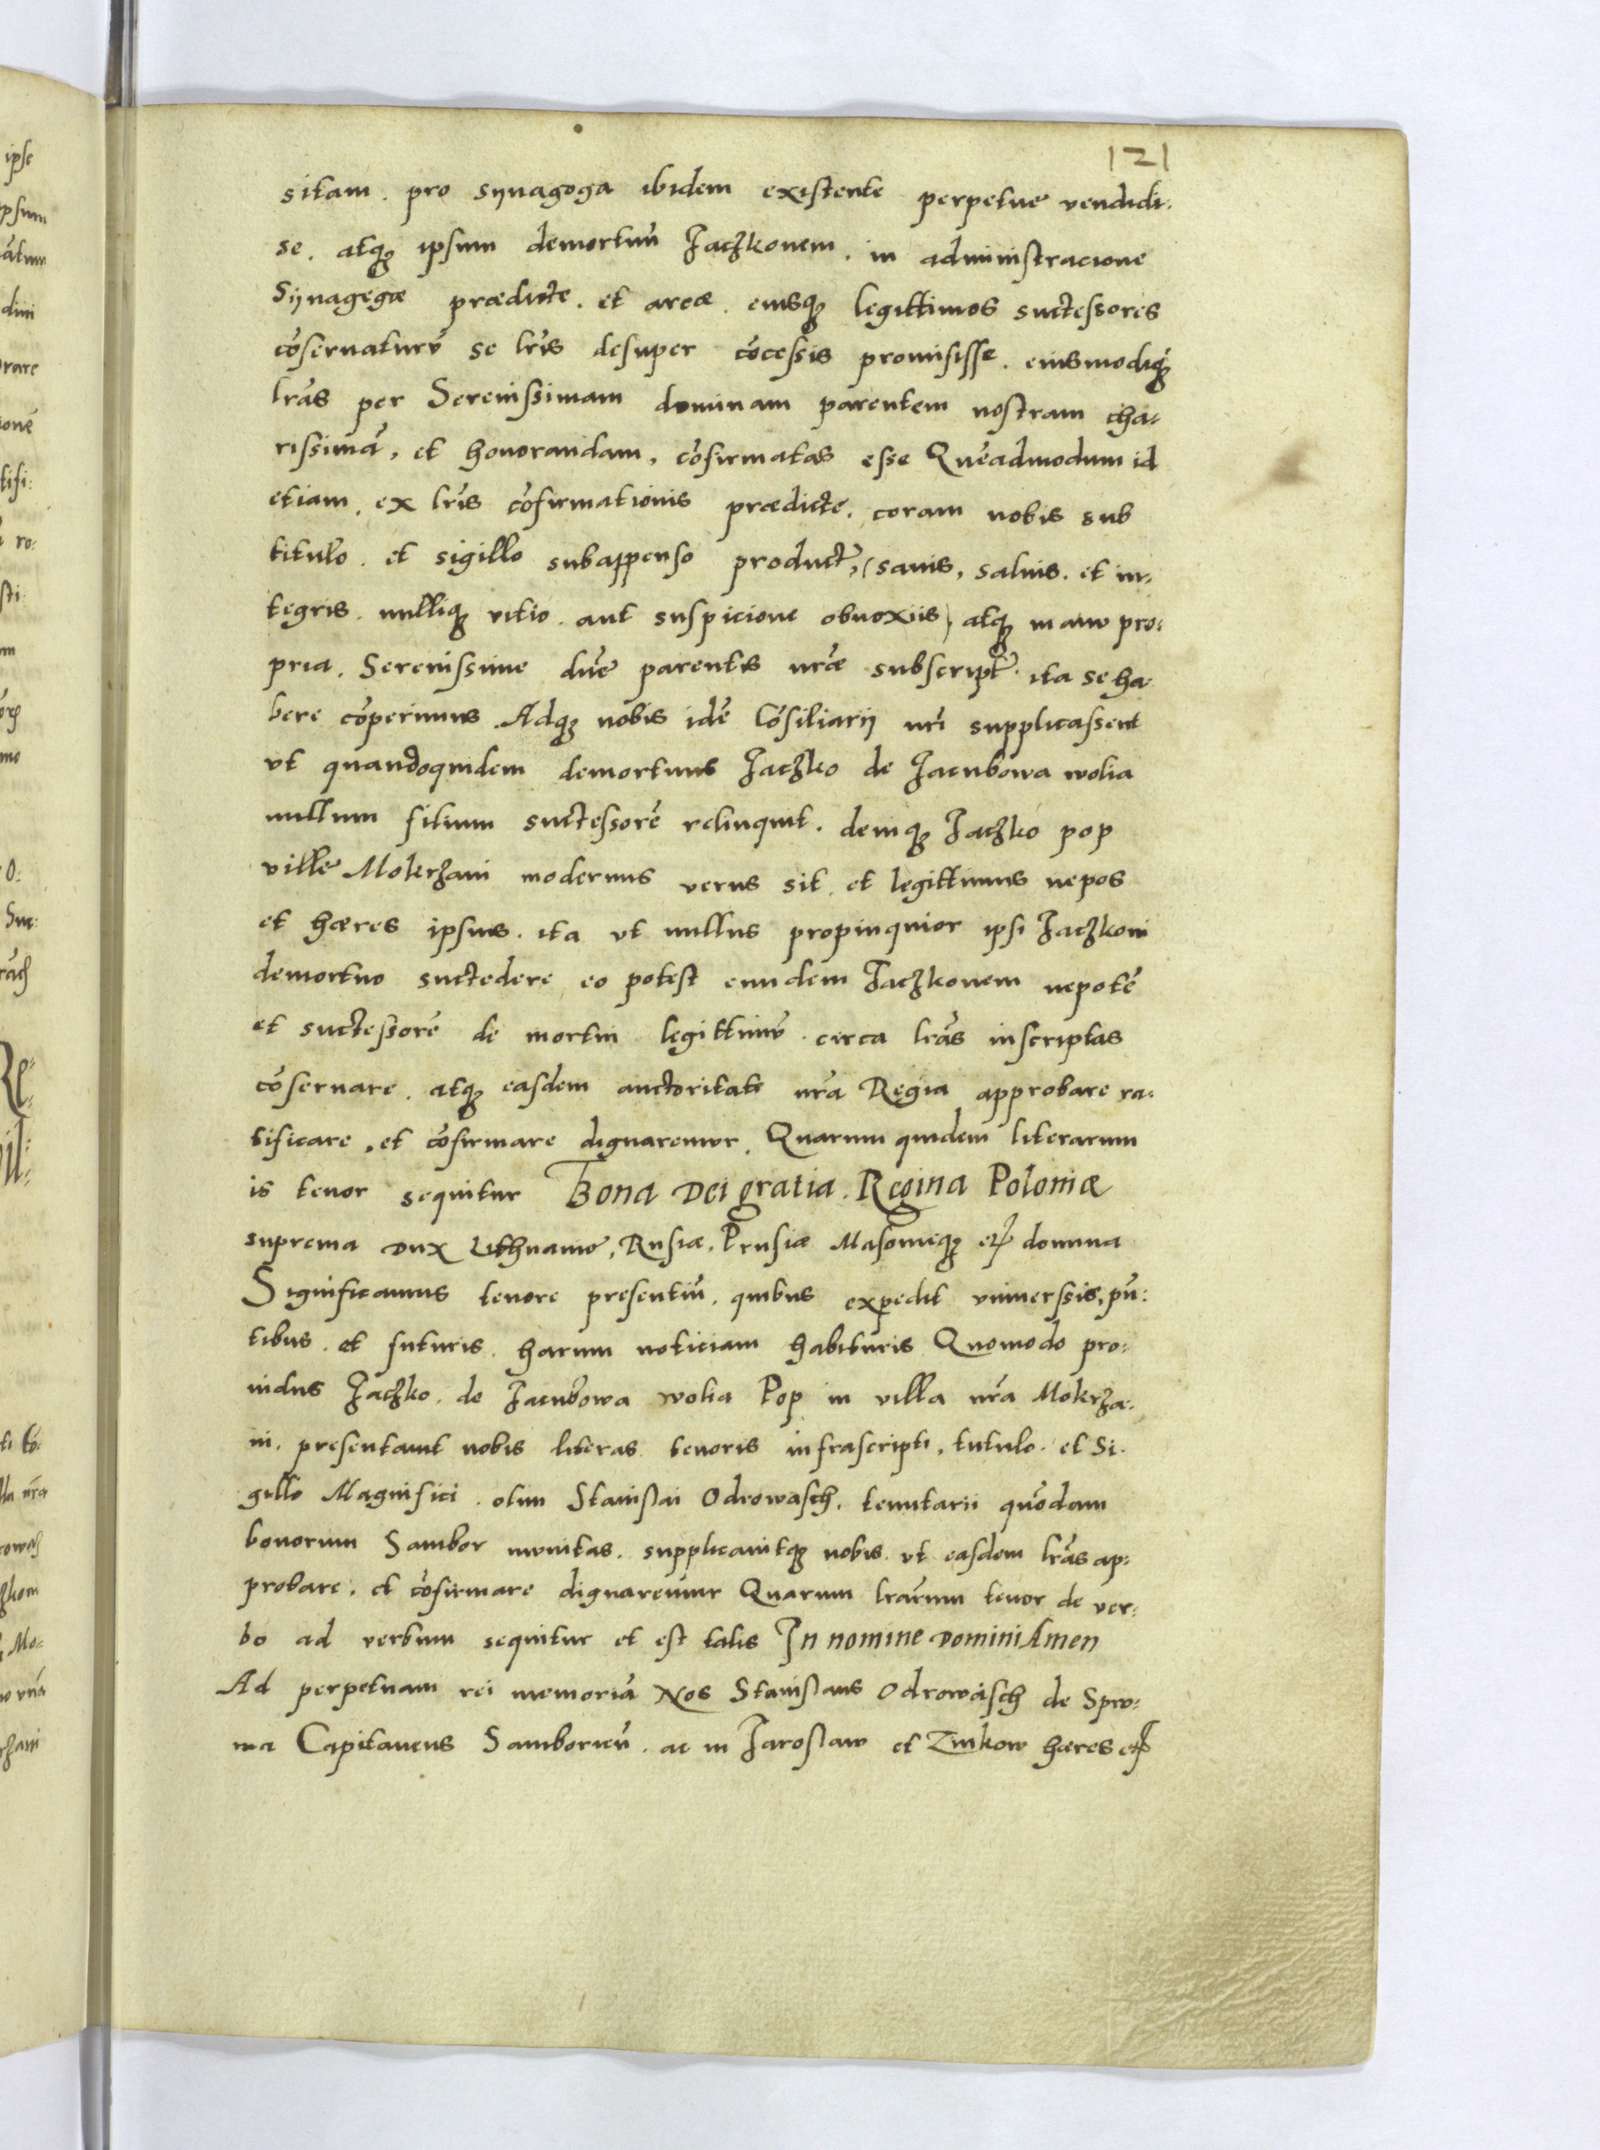 121
sitam. pro synagoga ibidem existente perpetue vendidi:
se. atq3 ipsum demortuū Jaczkonem. in administracione
Synagegæ prædicte. et areæ. eiusq3 legittimos suctessores
cōseruaturū se lr̄is desuper cōcessis promisisse. eiusmodiq3
lr̄as per Serenissimam dominam parentem nostram cha-
rissimā, et honorandam, cōfirmatas esse Quēadmodum id
etiam, ex lr̄is cōfirmationis prædicte. coram nobis sub
titulo. et sigillo subappenso product̄, (sanis, saluis. et in-
tegris. nulliq3 vitio. aut suspicione obnoxiis) atq3 manu pro:
pria. Serenissime dn̄e parentis nr̄æ subscript̄. ita se ha-
bere cōperimus. Adq3 nobis idē Cōsiliarij nr̄i supplicassent
vt quandoquidem demortuus Jaczko de Jacubowa wolia
nullum filium suctessorē relinquit. deniq3 Jaczko pop
ville Mokrzani modernus verus sit. et legittimus nepos
et hæres ipsius. ita vt nullus propinquior ipsi Jaczkoni
demortuo suctedere eo potest eundem Jaczkonem nepotē
et suctessorē de mortui legittimū. circa lr̄as inscriptas
cōseruare. atq3 easdem auctoritate nr̄a Regia approbare ra-
tificare, et cōfirmare dignaremur. Quarum quidem literarum
is tenor sequitur Bona Dei gratia. Regina Poloniæ
suprema Dux Lithuanie, Rusiæ, Prusiæ Masonieq3 etc domina
Significamus tenore presentiū. quibus expedit vniuerssis, pn̄:
tibus. et futuris. harum noticiam habituris Quomodo pro-
uidus Jaczko. de Jacubowa wolia Pop in villa nr̄a Mokrza-
ni. presentauit nobis literas tenoris infrascripti, tutulo. et Si-
gillo Magnifici. olim Stanislai Odrowasch. tenutarii quōdam
bonorum Sambor munitas. supplicauitq3 nobis. vt easdem lr̄as ap:
probare. et cōfirmare dignaremur Quarum lr̄arum tenor de ver-
bo ad verbum sequitur et est talis In nomine Domini Amen
Ad perpetuam rei memoriā Nos Stanislaus Odrowasch de Spro-
wa Capitaneus Samborien̄. ac in Jaroslaw et Zinkow hæres etc